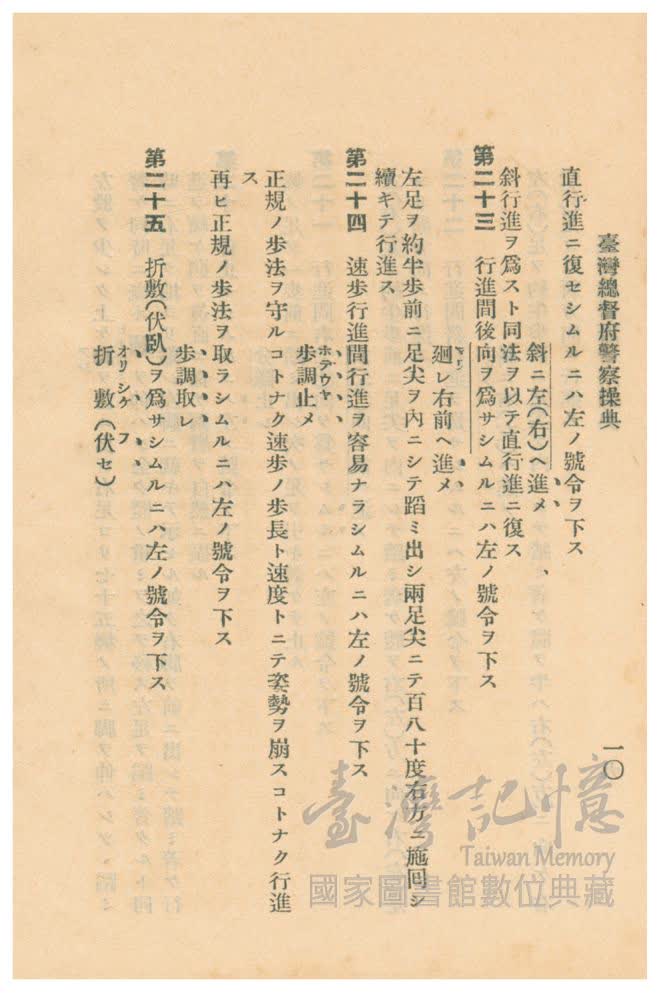 臺灣總督府警察操典
一〇
直行進ニ復セシムルニハ左ノ號令ヲ下ス
斜ニ左(右)ヘ進メ
斜行進ヲ爲スト同法ヲ以テ直行進ニ復ス
第二十三 行進間後向ヲ爲サシムルニハ左ノ號令ヲ下ス
廻レ右前ヘ進メ
左足ヲ約半歩前ニ足尖ヲ內ニシテ蹈ミ出シ兩足尖ニテ百八十度右方ニ施囘シ
續キテ行進ス
第二十四 速歩行進間行進ヲ容易ナラシムルニハ左ノ號令ヲ下ス
ホテウヤ
歩調止メ
正規ノ歩法ヲ守ルコトナク速歩ノ歩長ト速度トニテ姿勢ヲ崩スコトナク行進
ス
再ヒ正規ノ歩法ヲ取ラシムルニハ左ノ號令ヲ下ス
歩調取レ
第二十五 折敷(伏臥)ヲ爲サシムルニハ左ノ號令ヲ下ス
オリシケ フ
折敷(伏セ)
臺灣記憶
Taiwan Memory
國家圖書館數位典藏